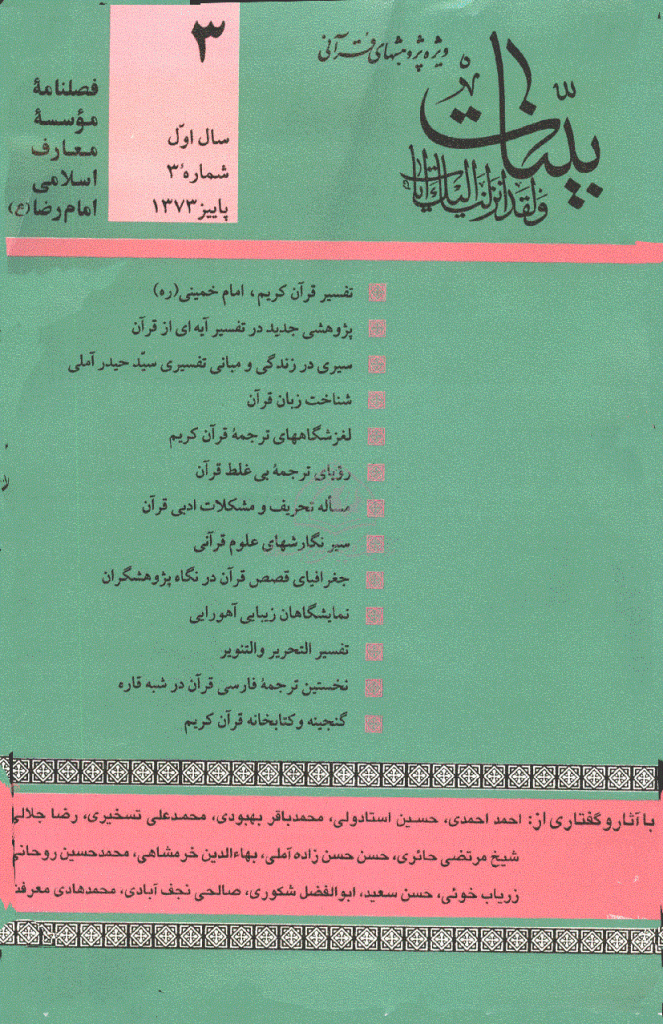 ویژه پژوهشهای قرآنی
بیّنات
ولقد انزلنا الیک آیات
۳
سال اوّل
شماره ۳
پاییز ۱۳۷۳
فصلنامهٔ
مؤسسهٔ
معارف
اسلامی
امام رضا (ع)
تفسیر قرآن کریم، امام خمینی(ره)
پژوهشی جدید در تفسیر آیه ای از قرآن
سیری در زندگی و مبانی تفسیری سیّد حیدر آملی
شناخت زبان قرآن
لغزشگاههای ترجمهٔ قرآن کریم
رؤیای ترجمهٔ بی غلط قرآن
مسأله تحریف و مشکلات ادبی قرآن
سیر نگارشهای علوم قرآنی
جغرافیای قصص قرآن در نگاه پژوهشگران
نمایشگاهان زیبایی آهورایی
تفسیر التحریر والتنویر
نخستین ترجمهٔ فارسی قرآن در شبه قاره
گنجینه وکتابخانه قرآن کریم
با آثار و گفتاری از: احمد احمدی، حسین استادولی، محمدباقر بهبودی، محمدعلی تسخیری، رضا جلالی
شیخ مرتضی حائری، حسن حسن زاده آملی، بهاءالدین خرمشاهی، محمدحسین روحانی
زریاب خوئی، حسن سعید، ابوالفضل شکوری، صالحی نجف آبادی، محمدهادی معرفت